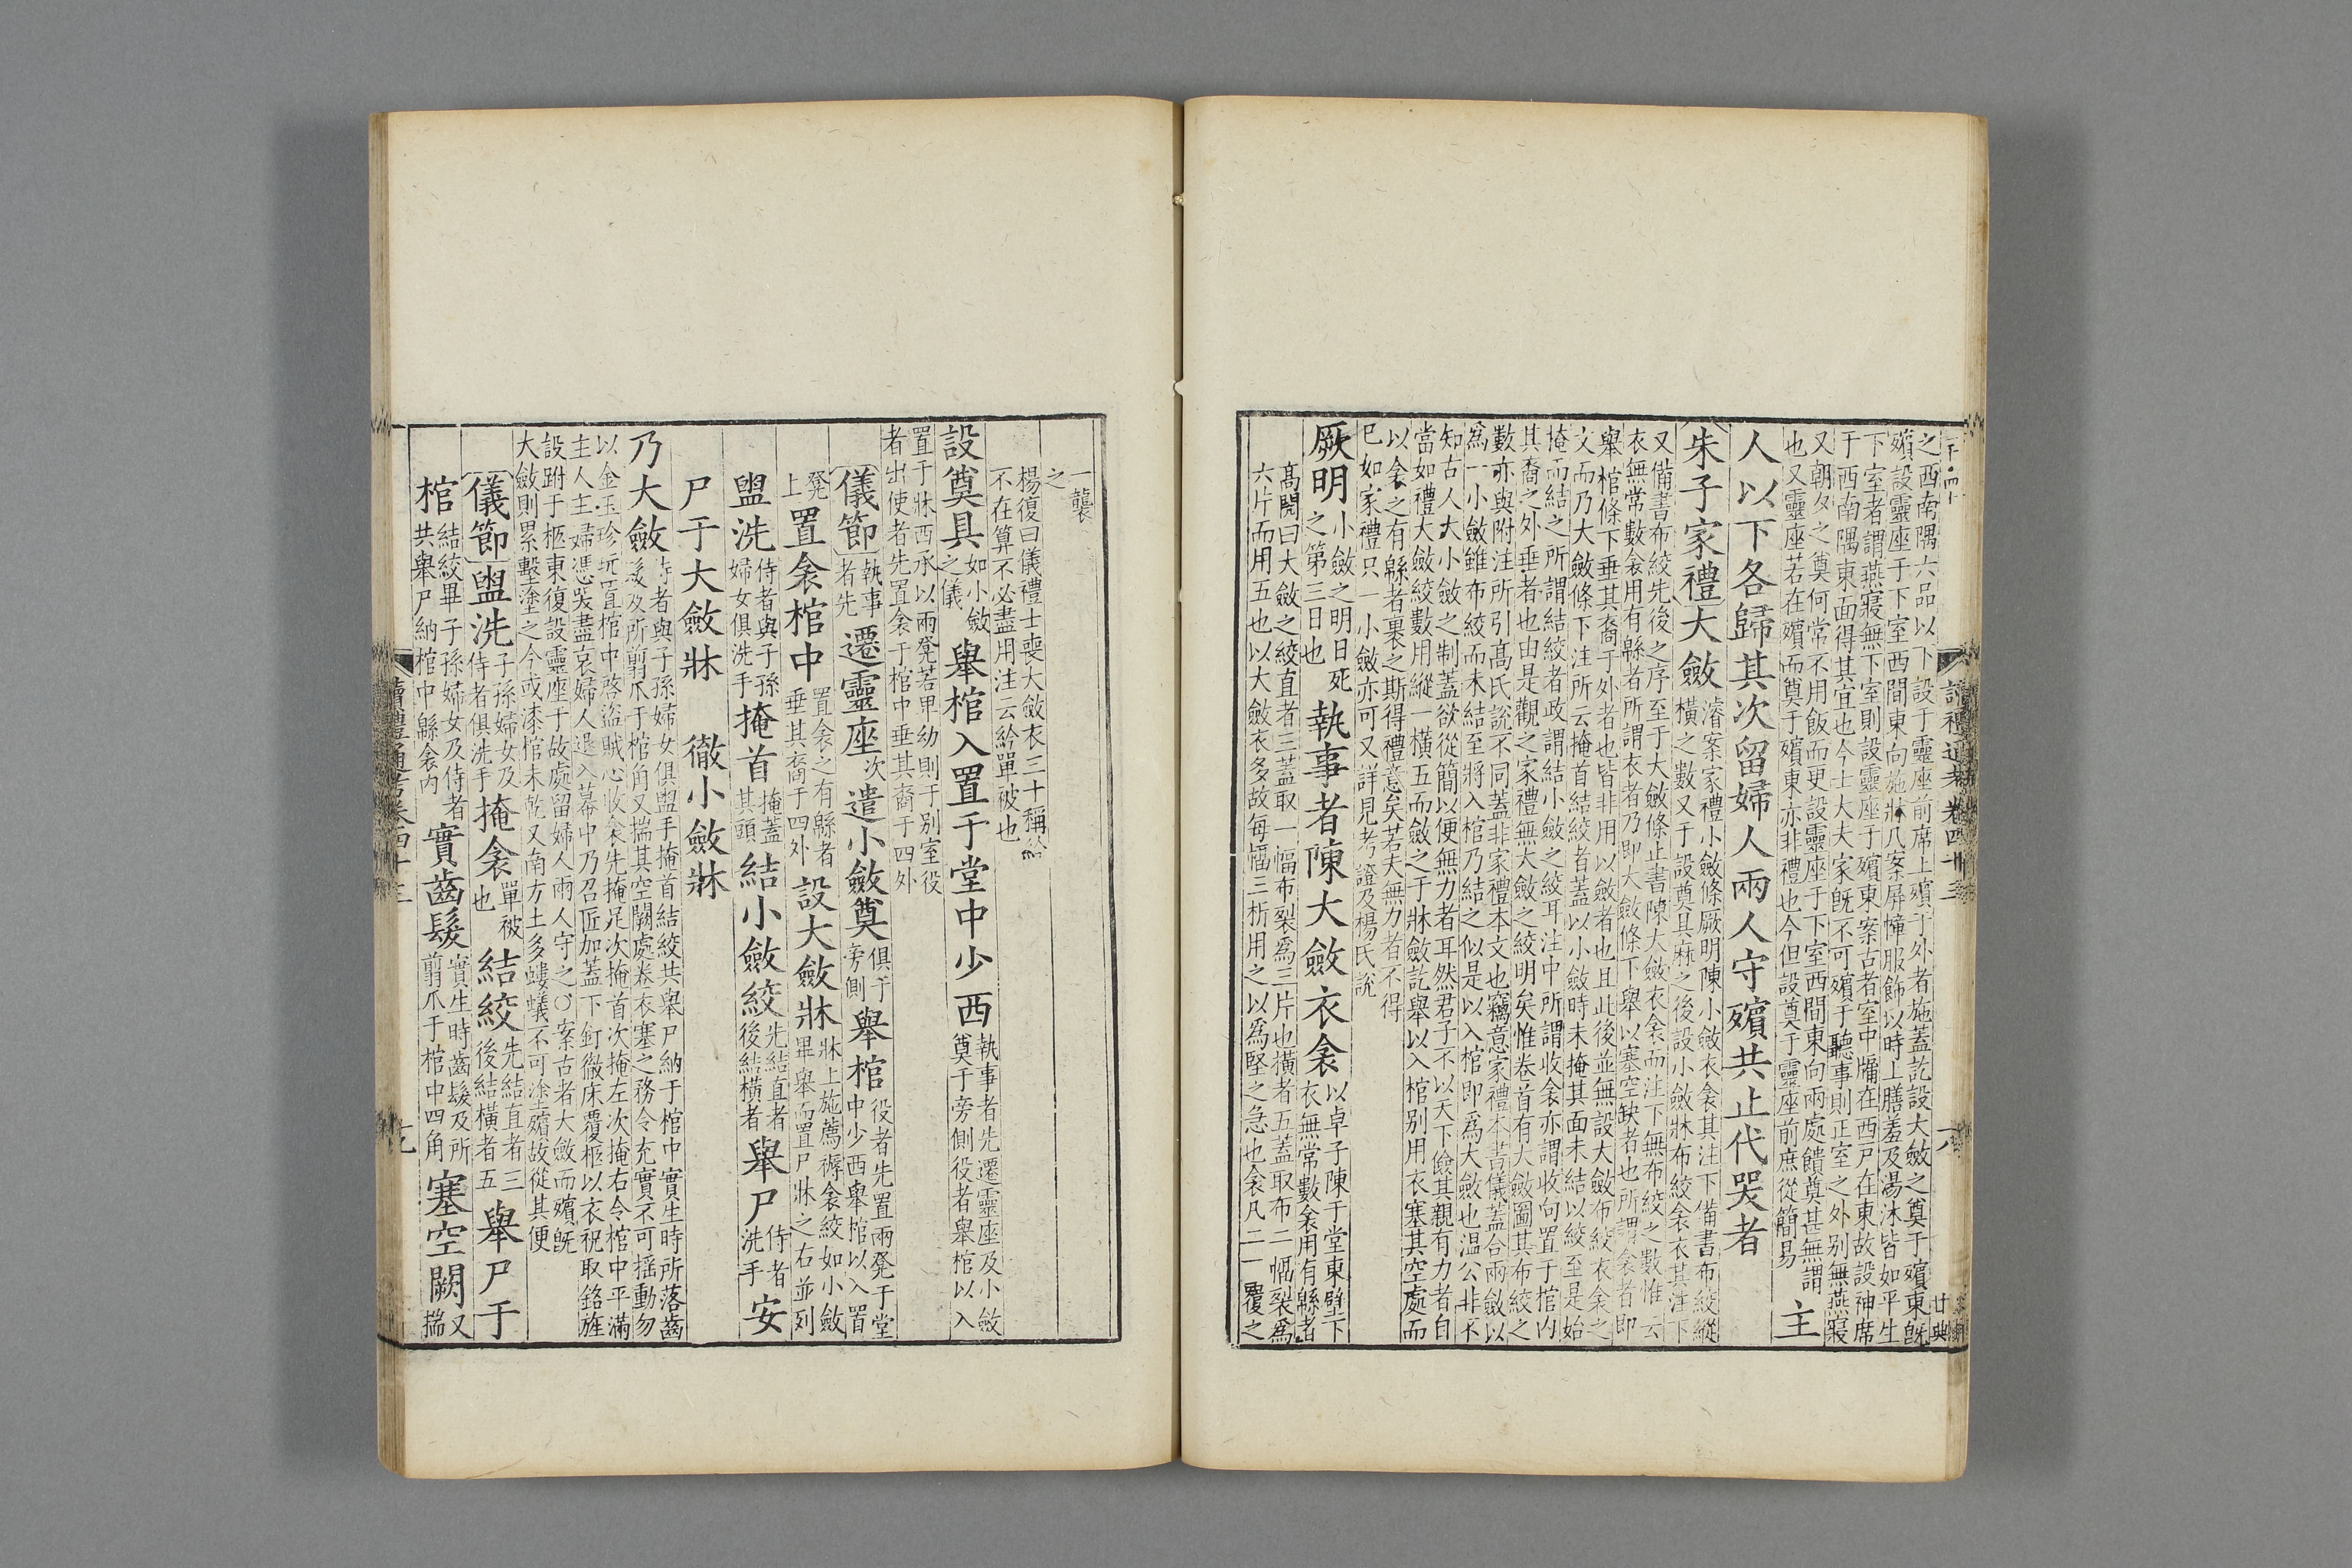 之西南隅六品以下設于靈座前席上殯于外者施蓋訖設大斂之奠于殯東旣
殯設靈座于下室西間東向施牀几案屏幛服飾以時上膳羞及湯沐皆如平生
下室者謂燕寢無下室則設靈座于殯東案古者室中牖在西戸在東故設神席
于西南隅東面得其宜也今士大夫家旣不可殯于聽事則正室之外別無燕寢
又朝夕之奠何常不用飯而更設靈座于下室西間東向兩處饋奠甚無謂
也又靈座若在殯而奠于殯東亦非禮也今但設奠于靈座前庶從簡易
主
人以下各歸其次留婦人兩人守殯共止代哭者
朱子家禮大斂
濬案家禮小斂條厥明陳小斂衣衾其注下備書布絞縱
橫之數又于設奠具麻之後設小斂牀布絞衾衣其注下
又備書布絞先後之序至于大斂條止書陳大斂衣衾而注下無布絞之數惟云
衣無常數衾用有緜者所謂衣者乃即大斂條下舉以塞空缺者也所謂衾者即
舉棺條下垂其裔于外者也皆非用以斂者也且此後並無設大斂布絞衣衾之
文而乃大斂條下注所云掩首結絞者蓋以小斂時未掩其面未結以絞至是始
掩而結之所謂結絞者政謂結小斂之絞耳注中所謂收衾亦謂收向置于棺内
其裔之外垂者也由是觀之家禮無大斂之絞明矣惟卷首有大斂圖其布絞之
數亦與附注所引高氏說不同蓋非家禮本文也竊意家禮本書儀蓋合兩斂以
爲一小斂雖布絞而未結至將入棺乃結之似是以入棺即爲大斂也温公非不
知古人大小斂之制蓋欲從簡以便無力者耳然君子不以天下儉其親有力者自
當如禮大斂絞數用縱一横五而斂之于牀斂訖舉以入棺別用衣塞其空處而
以衾之有緜者裹之斯得禮意矣若夫無力者不得
已如家禮只一小斂亦可又詳見考證及楊氏說
厥明
小斂之明日死
之第三日也
執事者陳大斂衣衾
以卓子陳于堂東壁下
衣無常數衾用有緜者
高閌曰大斂之絞直者三蓋取一幅布裂爲三片也横者五蓋取布二幅裂爲
六片而用五也以大斂衣多故每幅三析用之以爲堅之急也衾凡二一覆之
讀禮通考卷四十三
十八
一襲
之
楊復曰儀禮士喪大斂衣三十稱紟
不在算不必盡用注云紟單被也
設奠具
如小斂
之儀
舉棺入置于堂中少西
執事者先遷靈座及小斂
奠于旁側役者舉棺以入
置于牀西承以兩凳若卑幼則于別室役
者出使者先置衾于棺中垂其裔于四外
儀節
執事
者先
遷靈座
次
遣小斂奠
俱于
旁側
舉棺
役者先置兩凳于堂
中少西舉棺以入置
凳
上
置衾棺中
置衾之有緜者
垂其裔于四外
設大斂牀
牀上施薦褥衾絞如小斂
畢舉而置尸牀之右並列
盥洗
侍者與子孫
婦女俱洗手
掩首
掩蓋
其頭
結小斂絞
先結直者
後結横者
舉尸
侍者
洗手
安
尸于大斂牀　徹小斂牀
乃大斂
侍者與子孫婦女俱盥手掩首結絞共舉尸納于棺中實生時所落齒
髪及所剪爪于棺角又揣其空闕處卷衣塞之務令充實不可揺動勿
以金玉珍玩置棺中啓盜賊心收衾先掩足次掩首次掩左次掩右令棺中平滿
主人主婦憑哭盡哀婦人退入幕中乃召匠加蓋下釘徹床覆柩以衣祝取銘旌
設跗于柩東復設靈座于故處留婦人兩人守之○案古者大斂而殯旣
大斂則累墼塗之今或漆棺未乾又南方土多螻蟻不可塗殯故從其便
儀節
盥洗
子孫婦女及
侍者俱洗手
掩衾
單被
也
結絞
先結直者三
後結横者五
舉尸于
棺
結絞畢子孫婦女及侍者
共舉尸納棺中緜衾内
實齒髪
實生時齒髪及所
剪爪于棺中四角
塞空闕
又
揣
讀禮通考卷四十三
十九